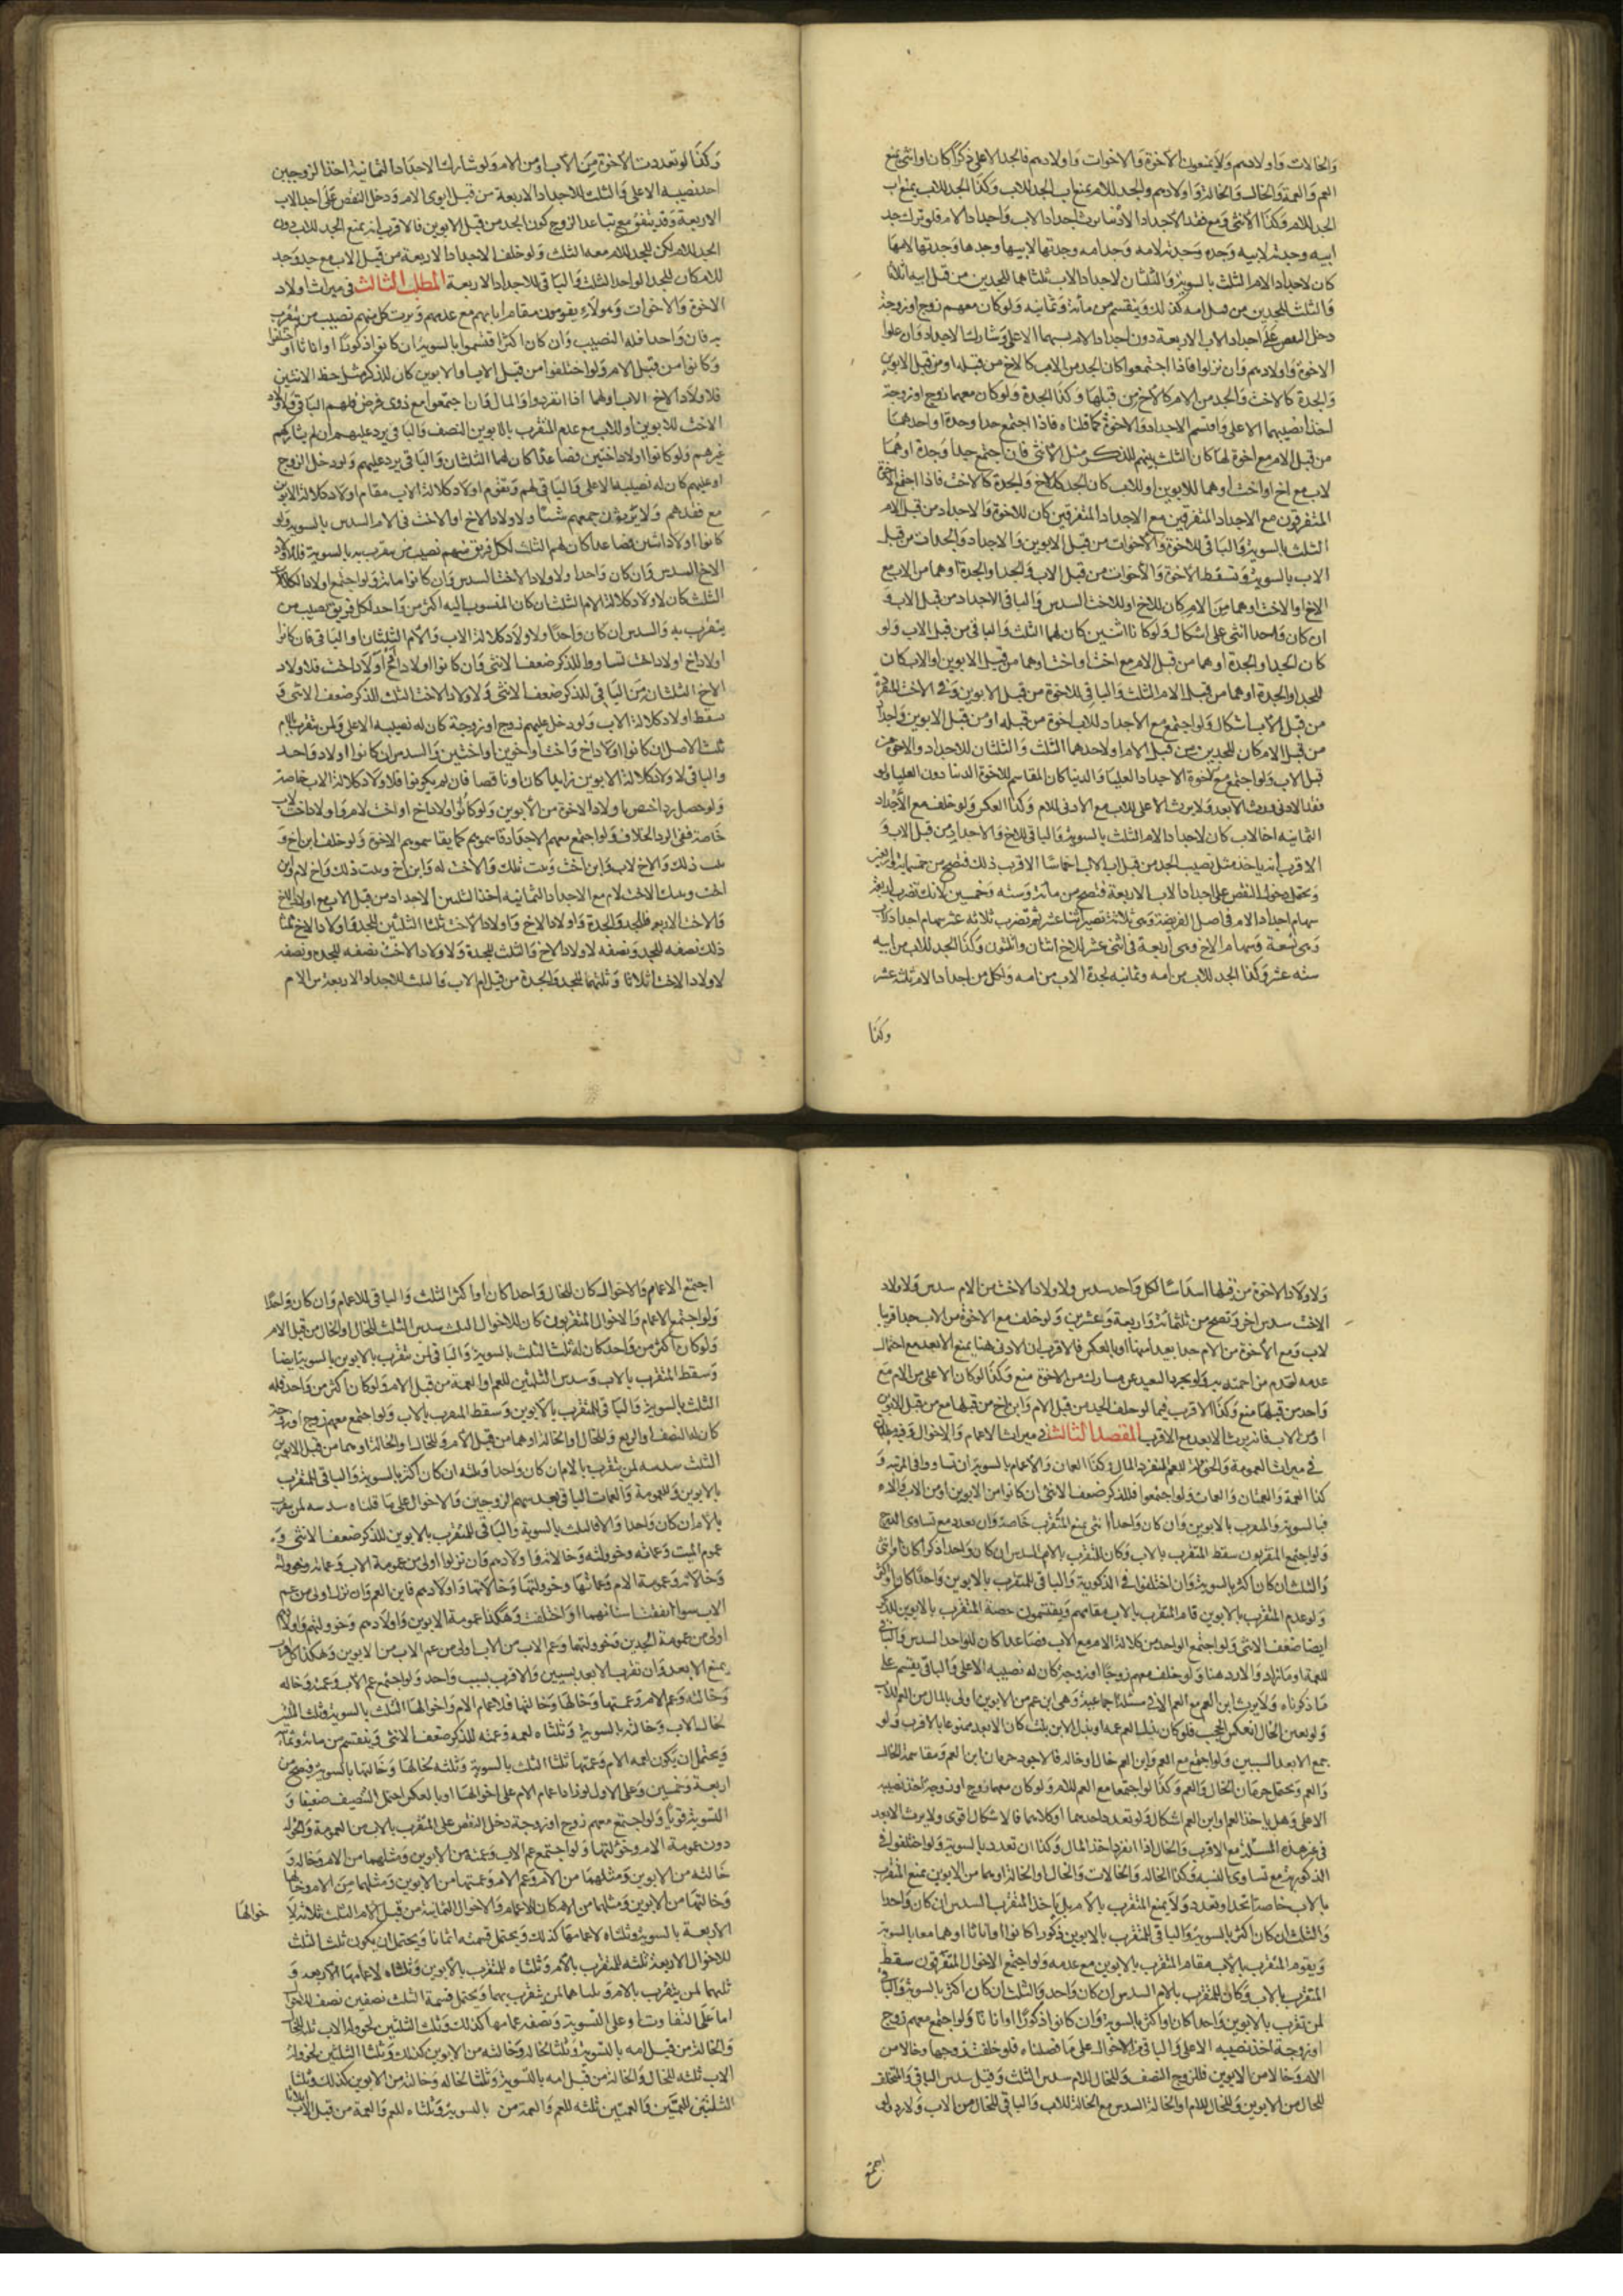 والخالات واولادهم ولا يمنعون الاخوة والاخوات واولادهم فالجد الاعلى ذكرا كان او انثى يمنع
العم والعمة والخال والخالة واولادهم والجد للام يمنع اب الجد للاب وكذا الجد للاب يمنع اب
الجد للام وكذا الانثى ومع فقد الاجداد الادنيا يرث اجداد الاب واجداد الام فلو ترك جد
ابيه وجدته لابيه وجده وجدته لامه وجد امه وجدتها لابيها وجدها وجدتها لامها
كان لاجداد الام الثلث بالسوية والثلثان لاجداد الاب ثلثاهما للجدين من قبل ابيه اثلاثا
والثلث للجدين من قبل امه كذلك وينقسم من مائة وثمانيه ولو كان معهم زوج او زوجة
دخل النقص على اجداد الاب الاربعة دون اجداد الام سهما الاعلى وشارك الاجداد وان علوا
الاخوة واولادهم وان نزلوا فاذا اجتمعوا كان الجد من الاب كالاخ من قبله او من قبل الابوين
والجدة كالاخت والجد من الام كالاخ من قبلها وكذا الجدة ولو كان معهما زوج او زوجة
اخذا نصيبهما الاعلى واقتسم الاجداد والاخوة كما قلناه فاذا اجتمع جد او جدة او احدهما
من قبل الام مع اخوة لها كان الثلث بينهم للذكر مثل الانثى فان اجتمع جد او جدة او هما
لاب مع اخ او اخت او هما للابوين او للاب كان الجد كالاخ والجدة كالاخت فاذا اجتمع الاخوة
المتفرقون مع الاجداد المتفرقين كان للاخوة والاجداد من قبل الام
الثلث بالسوية والباقي للاخوة والاخوات من قبل الابوين والاجداد والجدات من قبل
الاب بالسوية وتسقط الاخوة والاخوات من قبل الاب والجد او الجدة او هما من الاب مع
الاخ او الاخت او هما من الام كان للاخ او للاخت السدس والباقي الاجداد من قبل الاب و
ان كان واحدا انثى على اشكال ولو كانا اثنين كان لهما الثلث والباقي من قبل الاب ولو
كان الجد او الجدة او هما من قبل الام مع اخت او اخت او هما من قبل الابوين او الاب كان
للجد او الجدة او هما من قبل الام الثلث والباقي للاخوة من قبل الابوين وفي الاخت المنفردة
من قبل الاب اشكال ولو اجتمع مع الاجداد للاب اخوة من قبله او من قبل الابوين واجداد
من قبل الام كان للجدين من قبل الام او لاحدهما الثلث والثلثان للاجداد والاخوة من
قبل الاب ولو اجتمع مع الاخوة الاجداد العليا والدنيا كان المقاسم للاخوة الدنيا دون العليا ولو
فقد الادنى ورث الابعد ولا يرث الاعلى للاب مع الادنى للام وكذا العكس ولو خلف مع الاجداد
الثمانيه اخا لاب كان لاجداد الام الثلث بالسوية والباقي للاخ والاجداد من قبل الاب و
الاقرب انه ياخذ مثل نصيب الجد من قبل اب الاب
ويحتمل دخول النقص على اجداد الاب الاربعة فتصح من مائة وستة وخمسين لانك تضرب اربعة
سهام اجداد الام في اصل الفريضة وهي ثلاثة تصير اثنا عشر ثم تضرب ثلاثه عشر سهام اجداد الاب
وهي تسعة وسهام الاخ وهي اربعة في اثنى عشر للاخ اثنان وثلثون وكذا الجد للاب من ابيه
سته عشر وكذا الجد للاب من امه وثمانيه لجدة الاب من امه ولكل من اجداد الام ثلثة عشر
وكذا
وكذا لو تعددت الاخوة من الاب او من الام ولو شارك الاجداد الثمانية احد الزوجين
اخذ نصيبه الاعلى والثلث للاجداد الاربعة من قبل ابوي الام ودخل النقص على اجداد الاب
الاربعة وقد يتفق مع تباعد الزوج كون الجد من قبل الابوين فالاقرب انه يمنع الجد للاب دون
الجد للام لكن للجد للام معه الثلث ولو خلف الاجداد الاربعة من قبل الاب مع جد وجد
للام كان للجد الواحد الثلث والباقي للاجداد الاربعة المطلب الثالث في ميراث اولاد
الاخوة والاخوات وهولاء يقومون مقام ابايهم مع عدمهم ويرث كل منهم نصيب من يتقرب
به فان واحدا فله النصيب وان كان اكثر اقتسموا بالسوية ان كانوا ذكورا او اناثا او اختلفوا
وكانوا من قبل الام ولو اختلفوا من قبل الاب او الابوين كان للذكر مثل حظ الانثيين
فلاولاد الاخ للاب او لهما اذا انفردوا والمال وان اجتمعوا مع ذوى فرض فلهم الباقي ولاولاد
الاخت للابوين او للاب مع عدم المتقرب بالابوين النصف والباقي يرد عليهم ان لم يشاركهم
غيرهم ولو كانوا اولاد اختين فصاعدا كان لهما الثلثان والباقي يرد عليهم ولو دخل الزوج
او عليهم كان له نصيبه الاعلى والباقي لهم وتقوم اولاد كلالة الاب مقام اولاد كلالة الابوين
مع فقدهم ولا يرثون جميعهم شيئا ولاولاد الاخ او الاخت في الام السدس بالسوية ولو
كانوا اولاد اثنين فصاعدا كان لهم الثلث لكل فريق منهم نصيب من يتقرب به بالسوية فلاولاد
الاخ السدس وان كان واحدا ولاولاد الاخت السدس وان كانوا مائة ولو اجتمع اولاد الكلالات
الثلث كان لاولاد كلالة الام الثلث ان كان المنسوب اليه اكثر من واحد لكل فريق نصيب من
يتقرب به والسدس ان كان واحدا ولاولاد كلالة الاب والام الثلثان او الباقي فان كانوا
اولاد اخ او اولاد اخت تساووا للذكر ضعف الانثى وان كانوا اولاد اخ و اولاد اخت فلاولاد
الاخ الثلثان من الباقي للذكر ضعف الانثى ولاولاد الاخت الثلث للذكر ضعف الانثى و
سقط اولاد كلالة الاب ولو دخل عليهم زوج او زوجة كان له نصيبه الاعلى ولمن يتقرب بالام
ثلث الاصل ان كانوا اولاد اخ واخت او اخوين او اختين والسدس ان كانوا اولاد واحد
والباقي لاولاد كلالة الابوين زايدا كان او ناقصا فان لم يكونوا فلاولاد كلالة الاب خاصة
ولو حصل رد اختص باولاد الاخوة من الابوين ولو كانوا اولاد اخ او اخت لام واولاد اخت لاب
خاصة ففي الرد الخلاف ولو اجتمع معهم الاجداد قاسموهم كما يقاسموهم الاخوة ولو خلف ابن اخ و
بنت ذلك والاخ لاب وابن اخت وبنت تلك والاخت له وابن اخ وبنت ذلك والاخ لام وابن
اخت وبنت لاخت لام مع الاجداد الثمانيه اخذ الثلثين الاجداد من قبل الاب مع اولاد الاخ
والاخت الاربعة فللجد والجدة واولاد الاخ واولاد الاخت ثلثا الثلثين للجد واولاد الاخ ثلثا
ذلك نصفه للجد ونصفه لاولاد الاخ والثلث للجدة ولاولاد الاخت نصفه للجده ونصفه
لاولاد الاخت اثلاثا وثلثهما للجد والجدة من قبل ام الاب والثلث للاجداد الاربعة من الام
ولاولاد الاخوة من قبلها اسداسا لكل واحد سدس ولاولاد الاخت من الام سدس ولاولاد
الاخت سدس اخر وتصح من ثلثمائة واربعة وعشرين ولو خلف مع الاخوة من الاب جدا قريبا
لاب ومع الاخوة من الام جدا بعيدا منها او بالعكس فالاقرب ان الادنى هنا يمنع الابعد مع احتمال
عدمه لعدم مزاحمته به ولو تجرد البعيد عن مشارك من الاخوة منع وكذا لو كان الاعلى من الام مع
واحد من قبلها منع وكذا الاقرب فيما لو خلف الجد من قبل الام وابن اخ من قبلها مع من قبل الابوين
او من الاب فانه يرث الابعد مع الاقرب المقصد الثالث في ميراث الاعمام والاخوال وفيه مطلبان
في ميراث العمومة والخؤلة للعم المنفرد المال وكذا العمان والاعمام بالسوية ان تساووا في المرتبة و
كذا العمة والعمتان والعمات ولو اجتمعوا فللذكر ضعف الانثى ان كانوا من الابوين او من الاب والام
فبالسوية والمتقرب بالابوين وان كان واحدا انثى يمنع المتقرب خاصة وان تعدد مع تساوى الدرج
ولو اجتمع المتفرقون سقط المتقرب بالاب وكان للمتقرب بالام السدس ان كان واحدا ذكرا كان او انثى
والثلث ان كان اكثر بالسوية وان اختلفوا في الذكورية والباقي للمتقرب بالابوين واحدا كان او اكثر
ولو عدم المتقرب بالابوين قام المتقرب بالاب مقامهم ويقتسمون حصة المتقرب بالابوين للذكر
ايضا ضعف الانثى ولو اجتمع الواحد من كلالة الام مع الاب فصاعدا كان للواحد السدس والباقي
للعمة او ما زاد والارد هنا ولو خلف معهم زوجا او زوجة كان له نصيبه الاعلى والباقي يقسم على
ما ذكرناه ولا يرث ابن العم مع العم الا في مسئلة اجماعية وهي ابن عم من الابوين اولى بالمال من العم للاب
ولو بعين الخال انعكس الحجب فلو كان بدل العم عمة او بدل الابن بنت كان الابعد ممنوعا بالاقرب ولو
جمع الابعد السببين ولو اجتمع مع العم وابن العم خال او خاله فالاجود حرمان ابن العم ومقاسمة الخال
والعم ويحتمل حرمان الخال والعم وكذا لو اجتمعا مع العم للام ولو كان معهما زوج او زوجة اخذ نصيبه
الاعلى وهل ياخذ العم او ابن العم اشكال ولو تعدد احدهما او كلاهما فالاشكال اقوى ولا يرث الابعد
في غير هذه المسئلة مع الاقرب والخال اذا انفرد اخذ المال وكذا ان تعدد بالسوية ولو اختلفوا في
الذكورية مع تساوى النسبة وكذا الخالة والخالات والخال او الخالة او هما من الابوين يمنع المتقرب
بالاب خاصة اتحد او تعدد ولا يمنع المتقرب بالام بل ياخذ المتقرب السدس ان كان واحدا
والثلث ان كان اكثر بالسوية والباقي للمتقرب بالابوين ذكورا كانوا او اناثا او هما معا بالسوية
ويقوم المتقرب بالاب مقام المتقرب بالابوين مع عدمه ولو اجتمع الاخوال المتفرقون سقط
المتقرب بالاب وكان للمتقرب بالام السدس ان كان واحد والثلث ان كان اكثر بالسوية والباقي
لمن تقرب بالابوين واحدا كان او اكثر بالسوية وان كانوا ذكورا او اناثا ولو اجتمع معهم زوج
او زوجة اخذ نصيبه الاعلى والباقي للاخوال على ما فصلناه فلو خلفت زوجها وخالا من
الام وخالا من الابوين فللزوج النصف وللخال للام سدس الثلث وقيل سدس الباقي والمتخلف
للخال من الابوين وللخال للام او الخالة السدس مع الخالة للاب والباقي للخال من الاب ولا رد ولو
اجتمع
اجتمع الاعمام والاخوال كان للخال واحدا كان او اكثر الثلث والباقي للاعمام وان كان واحدا
ولو اجتمع الاعمام والاخوال المتفرقون كان للاخوال الثلث سدس الثلث للخال او الخالة من قبل الام
ولو كان اكثر من واحد كان له ثلث الثلث بالسوية والباقي لمن يتقرب بالابوين بالسوية ايضا
وسقط المتقرب بالاب وسدس الثلثين للعم او العمة من قبل الام ولو كان اكثر من واحد فله
الثلث بالسوية والباقي للمتقرب بالابوين وسقط المتقرب بالاب ولو اجتمع معهم زوج او زوجة
كان له النصف او الربع وللخال او الخالة او هما من قبل الام وللخال او الخالة او هما من قبل الابوين
الثلث سدسه لمن يتقرب بالام ان كان واحدا وثلثه ان كان اكثر بالسوية والباقي للمتقرب
بالابوين وللعمومة والعمات الباقي بعد سهم الزوجين والاخوال على ما قلناه سدسه لمن يتقرب
بالام ان كان واحدا والا فالثلث بالسوية والباقي للمتقرب بالابوين للذكر ضعف الانثى و
عموم الميت وعماته وخؤولته وخالاته واولادهم وان نزلوا اولى من عمومة الاب وعماته وخؤولته
وخالاته وعمومة الام وعماتها وخؤولتها وخالاتها واولادهم فابن العم وان نزل اولى من عم
الاب سواء اتفقت انسابهما او اختلفت وهكذا عمومة الابوين واولادهم وخؤولتهم واولادهم
اولى من عمومة الجدين وخؤولتهما وعم الاب من الاب اولى من عم الاب من الابوين وهكذا كل اقرب
يمنع الابعد وان تقرب الابعد بسببين والاقرب بسبب واحد ولو اجتمع عم الاب وعمته وخاله
وخالته وعم الام وعمتها وخالها وخالتها فلاعمام الام واخوالها الثلث بالسوية وثلث الثلثين
لخال الاب وخالته بالسوية وثلثاه لعمه وعمته للذكر ضعف الانثى وينقسم من مائة وثمانية
ويحتمل ان يكون لعم الام وعمتها ثلثا الثلث بالسوية وثلثه لخالها وخالتها بالسوية فيصح من
اربعة وخمسين وعلى الاول لو زاد اعمام الام على اخوالها او بالعكس احتمل التنصيف ضعيفا و
التسوية قويا ولو اجتمع معهم زوج او زوجة دخل النقص على المتقرب بالاب من العمومة والخؤلة
دون عمومة الام وخؤلتها ولو اجتمع عم الاب وعمته من الابوين ومثلهما من الام وخاله و
خالته من الابوين ومثلهما من الام وعم الام وعمتها من الابوين ومثلهما من الام وخالها
وخالتها من الابوين ومثلهما من الام كان للاعمام والاخوال الثمانية من قبل الام الثلث ثلاثه لا
خوالها
الاربعة بالسوية وثلثاه لاعمامها كذلك ويحتمل قسمته اثمانا ويحتمل ان يكون ثلث الثلث
للاخوال الاربعة ثلثه للمتقرب بالام وثلثاه للمتقرب بالابوين وثلثاه لاعمامها الاربعة و
ثلثهما لمن يتقرب بالام وثلثاهما لمن يتقرب بهما ويحتمل قسمة الثلث نصفين نصف للاخوال
اما على التفاوت او على التسوية ونصفه اعمامها كذلك وثلث الثلثين لخؤولة الاب ثلثه للخال
والخالة من قبل امه بالتسوية وثلثا لخاله وخالته من الابوين كذلك وثلثا الثلثين لخؤولة
الاب ثلثه للخال والخالة من قبل امه بالتسوية وثلثا لخاله وخالته من الابوين كذلك وثلثا
الثلثين للعمين والعمتين ثلثه للعم والعمة من بالسوية وثلثاه للعم والعمة من قبل الاب اثلاثا